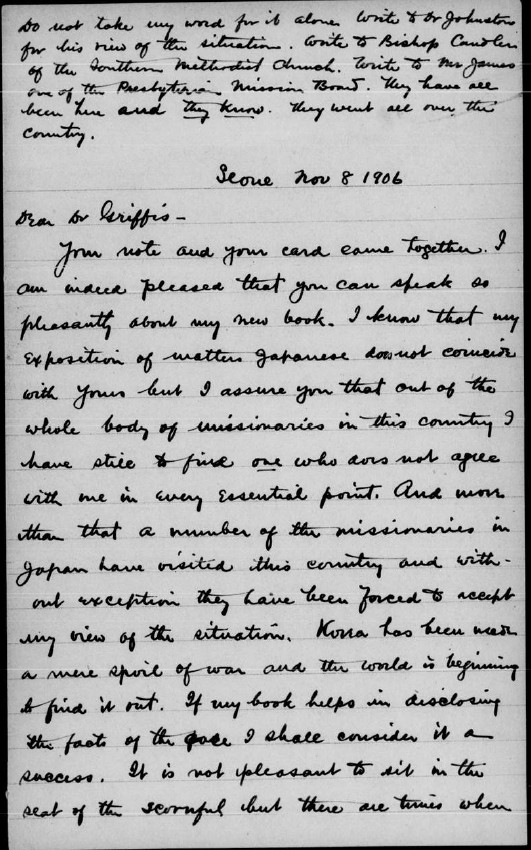 Do not take my word for it alone. Write to Dr Johnston
for his view of the situation. Write to Bishop Candler
of the Southern Methodist Church. Write to Mr James
one of the Presbyterian Mission Board. They have all
been here and they know. They went all over the
country.
Seoul Nov 8 1906
Dear Dr Griffis -
Your note and your card came together. I
am indeed pleased that you can speak so
pleasantly about my new book. I know that my
exposition of matters Japanese does not coincide
with yours but I assure you that out of the
whole body of missionaries in this country I
have still to find one who does not agree
with me in every essential point. And more
than that a number of the missionaries in
Japan have visited this country and with-
out exception they have been forced to accept
my view of the situation. Korea has been made
a mere spoil of war and the world is beginning
to find it out. If my book helps in disclosing
the facts of the case I shall consider it a
success. It is not pleasant to sit in the
seat of the scornful but there are times when